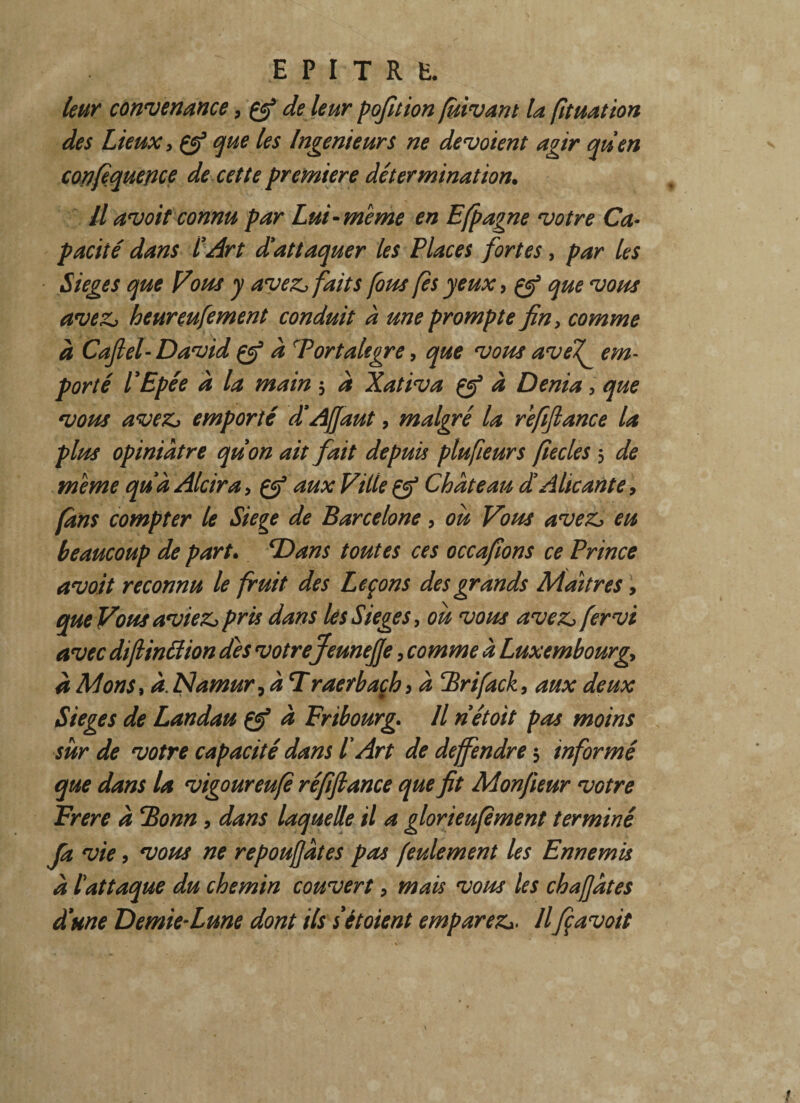 EPITRE.
leur convenance, & de leur poſition ſuivant la ſituation
des Lieux, & que les Ingenieurs ne devoient agir qu'en
conſequence de cette premiere détermination.
Il avoit connu par Lui-même en Eſpagne votre Ca-
pacité dans l'Art d'attaquer les Places fortes, par les
Sieges que Vous y avez faits ſous ſes yeux, & que vous
avez heureuſement conduit à une prompte fin, comme
à Caſtel-David & à Portalegre, que vous avez em-
porté l'Epée à la main; à Xativa & à Denia, que
vous avez emporté d'Aſſaut, malgré la réſiſtance la
plus opiniâtre qu'on ait fait depuis pluſieurs ſiecles; de
même qu'à Alcira, & aux Ville & Château d'Alicante,
ſans compter le Siege de Barcelone, où Vous avez eu
beaucoup de part. Dans toutes ces occaſions ce Prince
avoit reconnu le fruit des Leçons des grands Maîtres,
que Vous aviez pris dans les Sieges, où vous avez ſervi
avec diſtinction dès votre Jeuneſſe, comme à Luxembourg,
à Mons, à Namur, à Traerbach, à Briſack, aux deux
Sieges de Landau & à Fribourg. Il n'étoit pas moins
sûr de votre capacité dans l'Art de deffendre; informé
que dans la vigoureuſe réſiſtance que fit Monſieur votre
Frere à Bonn, dans laquelle il a glorieuſement terminé
ſa vie, vous ne repouſſâtes pas ſeulement les Ennemis
à l'attaque du chemin couvert, mais vous les chaſſâtes
d'une Demie-Lune dont ils s'étoient emparez. Il ſçavoit